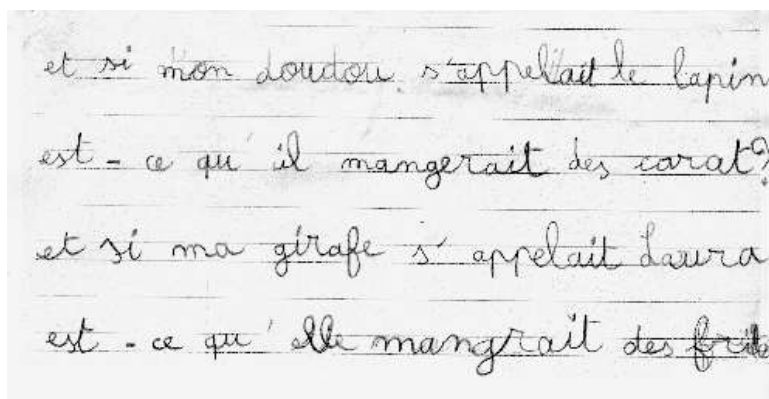 et si mon doudou s'appelait le lapin
est-ce qu'il mangerait des carat?
et si ma girafe s'appelait Laura
est-ce qu'elle mangrait des frite